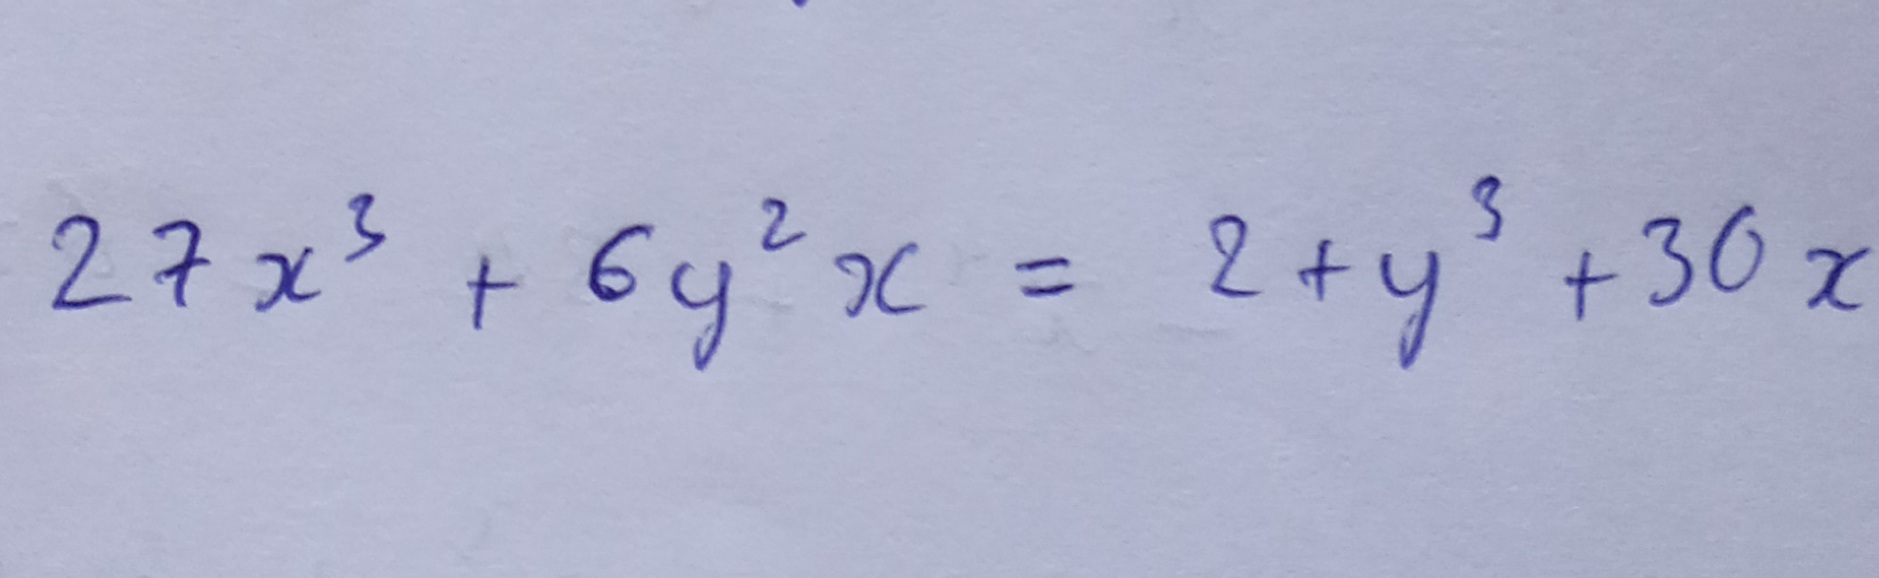 27x³ + 6y²x = 2 + y³ + 30x